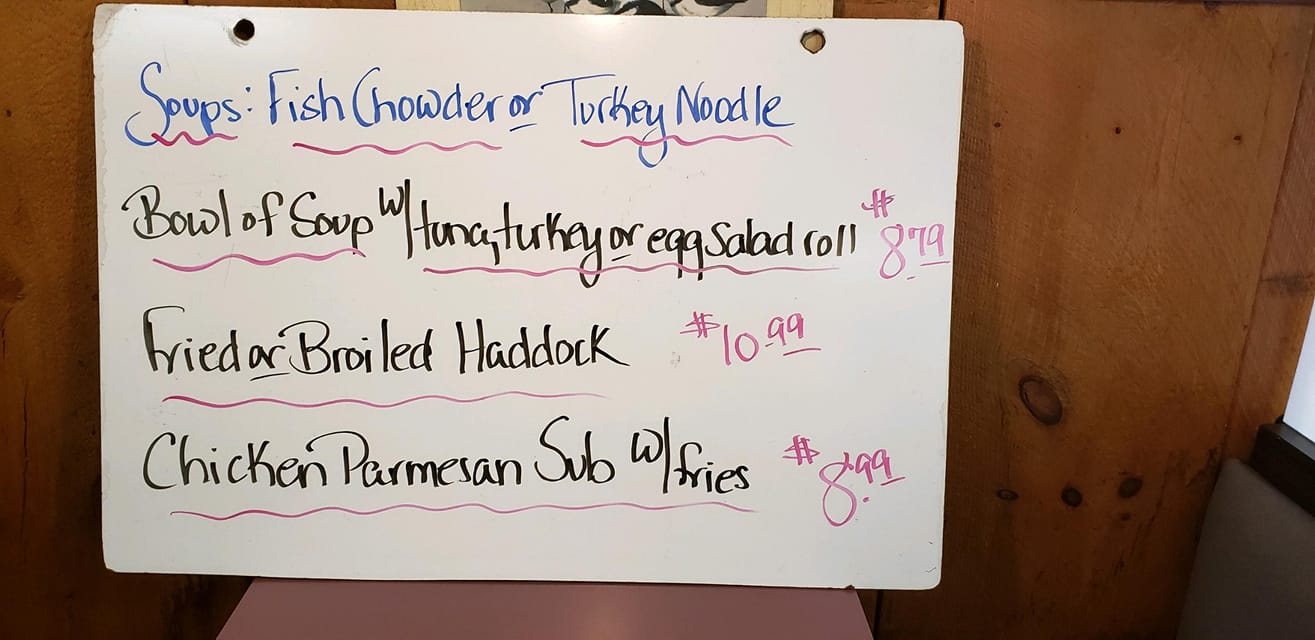 Soups: Fish Chowder or Turkey Noodle
Bowl of Soup w/tuna, turkey or egg salad roll $8.79
Fried or Broiled Haddock $10.99
Chicken Parmesan Sub w/fries $8.99